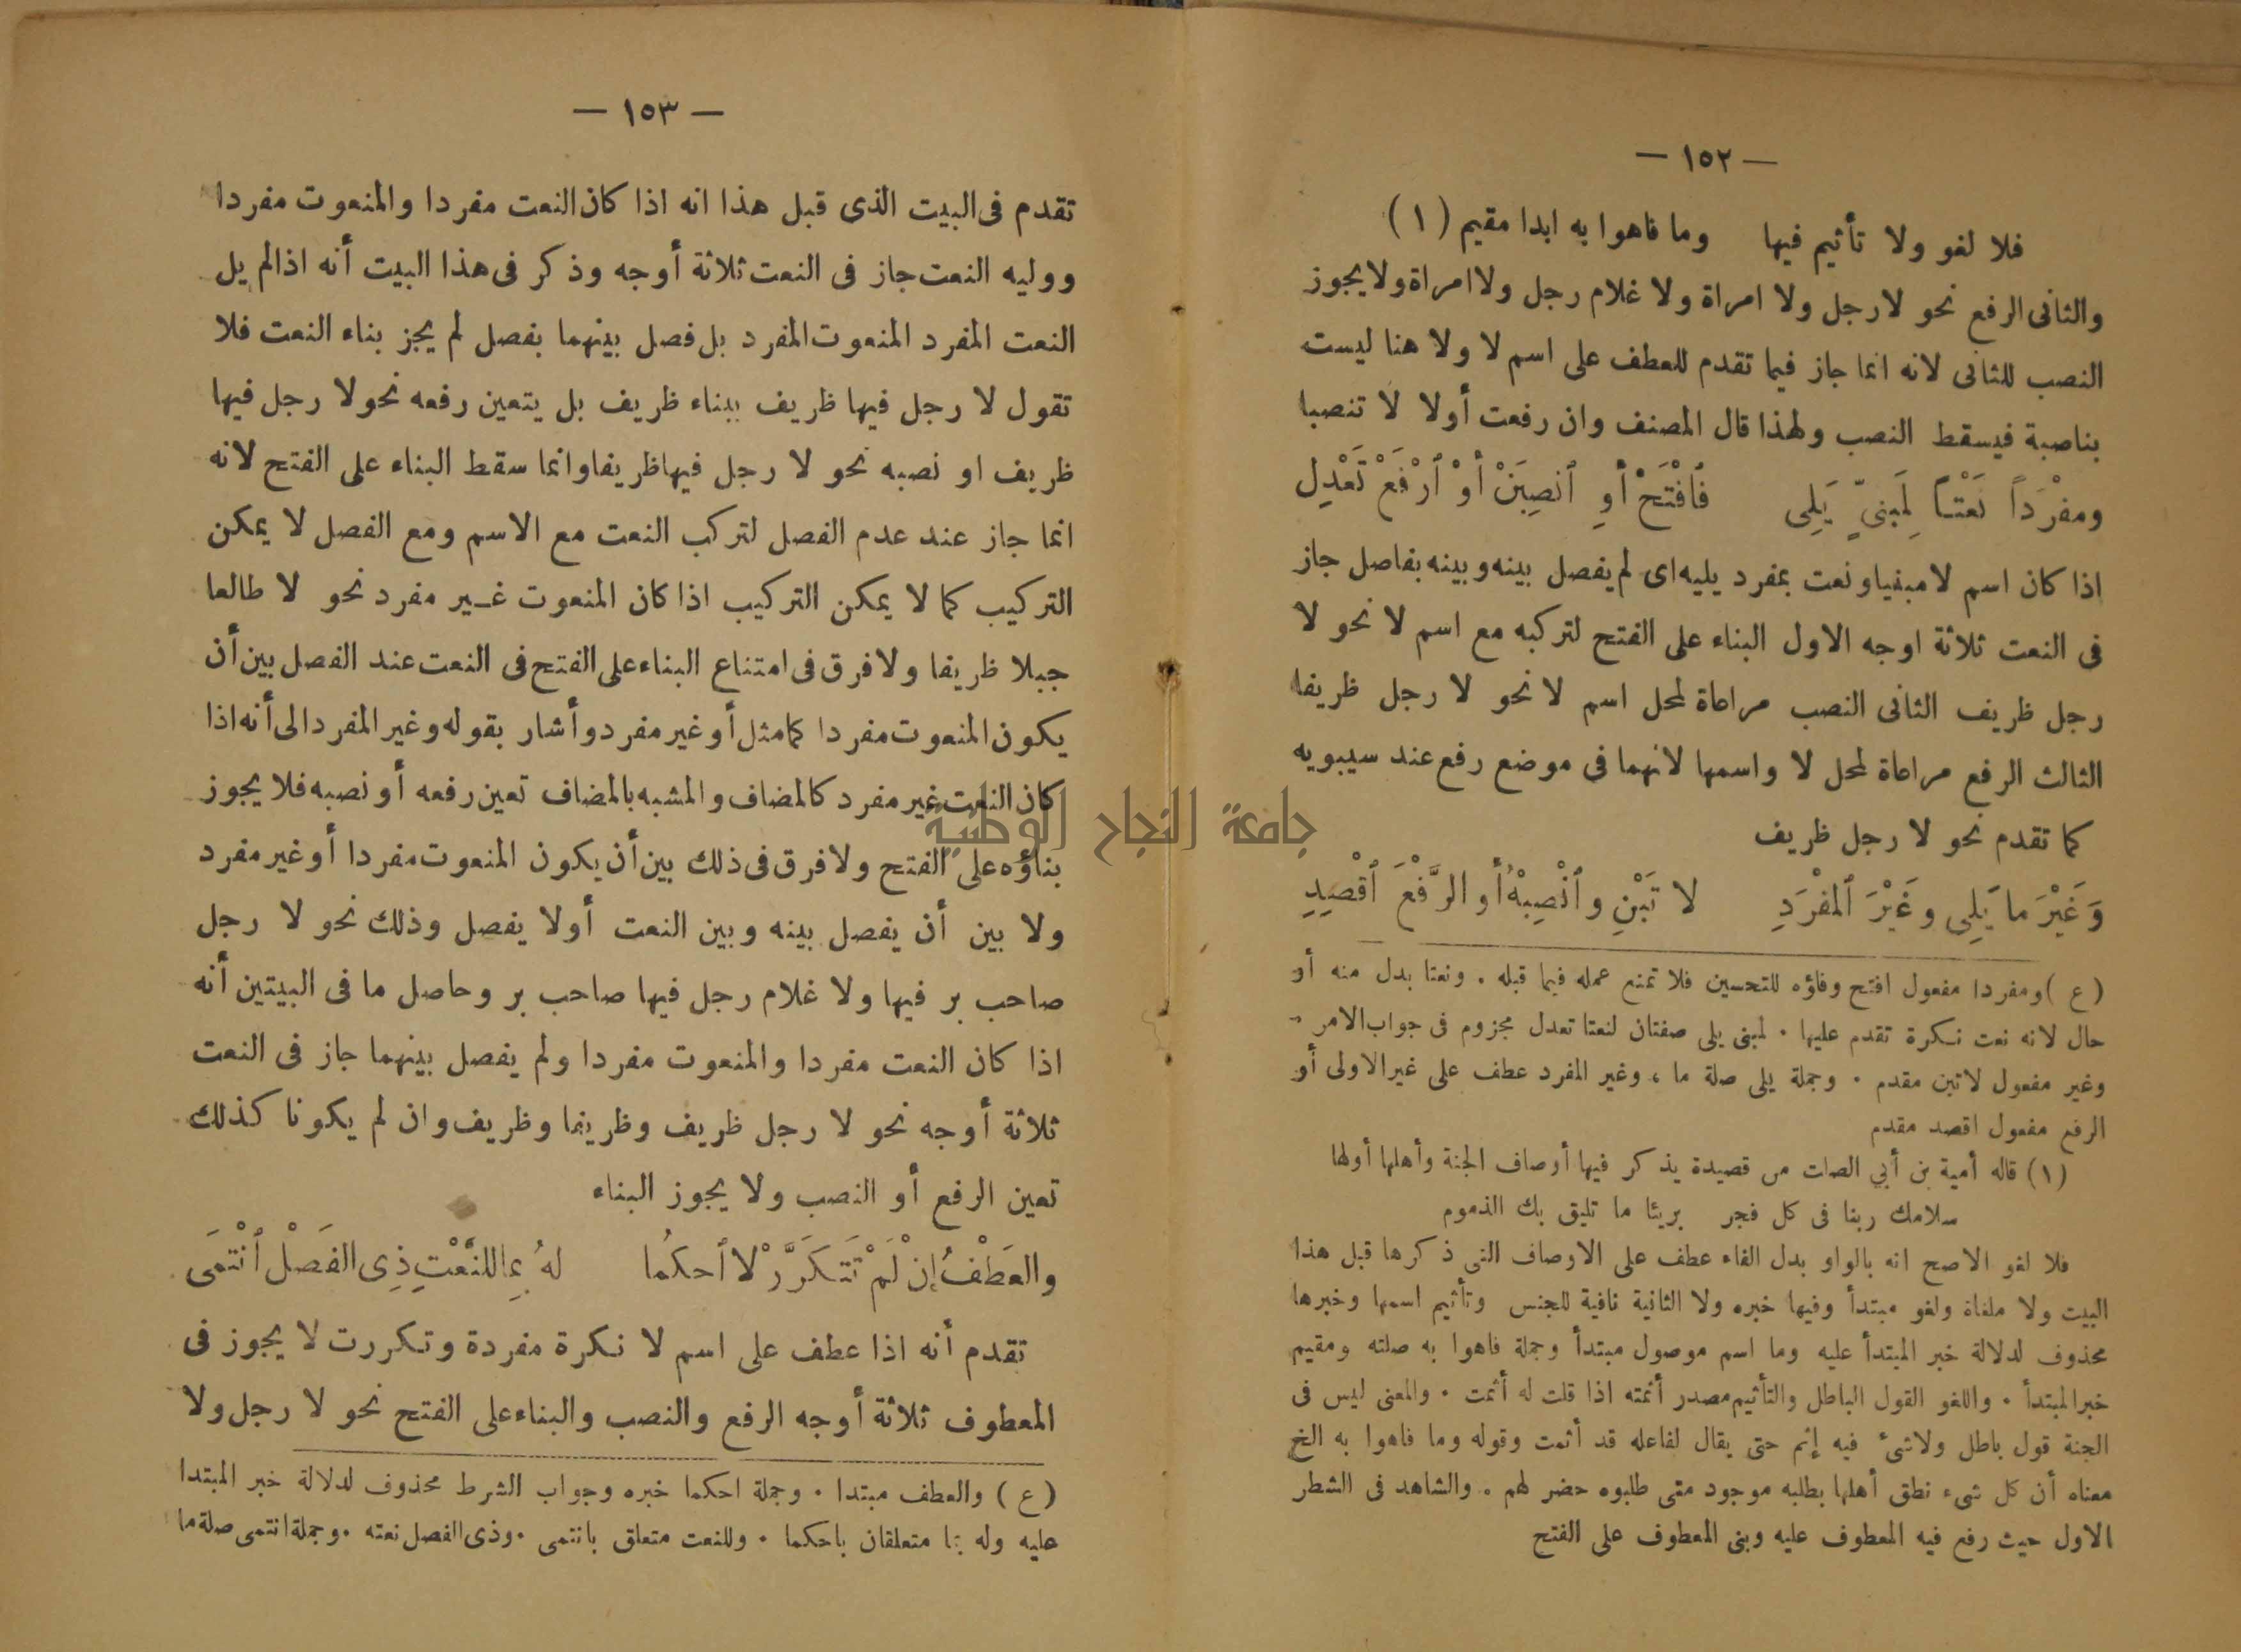 — ١٥٢ —
فلا لغو ولا تأثيم فيها وما فاهوا به ابدا مقيم (١)
والثانى الرفع نحو لا رجل ولا امراة ولا غلام رجل ولا امراة ولا يجوز
النصب للثانى لانه انما جاز فيما تقدم للعطف على اسم لا ولا هنا ليست
بناصبة فيسقط النصب ولهذا قال المصنف وان رفعت أولا لا تنصبا
ومفْرَداً نَعْتاً لِمَبنىٍّ يَلِى فَافْتَحْ أوِ ٱنصِبَنْ أوْ ٱرْفَعْ تَعْدِلِ
اذا كان اسم لا مبنيا ونعت بمفرد يليه اى لم يفصل بينه وبينه بفاصل جاز
فى النعت ثلاثة اوجه الاول البناء على الفتح لتركبه مع اسم لا نحو لا
رجل ظريف الثانى النصب مراعاة لمحل اسم لا نحو لا رجل ظريفا
الثالث الرفع مراعاة لمحل لا واسمها لانهما فى موضع رفع عند سيبويه
كما تقدم نحو لا رجل ظريف
وَغَيْرَ ما يَلِى وغَيْرَ ٱلمفْرَدِ لا تَبْنِ وٱنْصِبْهُ أو الرَّفْعَ ٱقْصِدِ
(ع) ومفردا مفعول افتح وفاؤه للتحسين فلا تمنع عمله فيما قبله . ونعتا بدل منه أو
حال لانه نعت نكرة تقدم عليها . لمبنى يلى صفتان لنعتا تعدل مجزوم فى جواب الامر -
وغير مفعول لاتبن مقدم . وجملة يلى صلة ما ، وغير المفرد عطف على غير الاولى أو
الرفع مفعول اقصد مقدم
(١) قاله أمية بن أبي الصات من قصيدة يذكر فيها أوصاف الجنة وأهلها أولها
سلامك ربنا فى كل فجر بريئا ما تليق بك الذموم
فلا لغو الاصح انه بالواو بدل الفاء عطف على الاوصاف التى ذكرها قبل هذا
البيت ولا ملغاة ولغو مبتدأ وفيها خبره ولا الثانية نافية للجنس وتأثيم اسمها وخبرها
محذوف لدلالة خبر المبتدأ عليه وما اسم موصول مبتدأ وجملة فاهوا به صلته ومقيم
خبر المبتدأ . واللغو القول الباطل والتأثيم مصدر أثمته اذا قلت له أثمت . والمعنى ليس فى
الجنة قول باطل ولاشىء فيه إثم حتى يقال لفاعله قد أثمت وقوله وما فاهوا به الخ
معناه أن كل شىء نطق أهلها بطلبه موجود متى طلبوه حضر لهم . والشاهد فى الشطر
الاول حيث رفع فيه المعطوف عليه وبنى المعطوف على الفتح
— ١٥٣ —
تقدم فى البيت الذى قبل هذا انه اذا كان النعت مفردا والمنعوت مفردا
ووليه النعت جاز فى النعت ثلاثة أوجه وذكر فى هذا البيت أنه اذا لم يل
النعت المفرد المنعوت المفرد بل فصل بينهما بفصل لم يجز بناء النعت فلا
تقول لا رجل فيها ظريف ببناء ظريف بل يتعين رفعه نحو لا رجل فيها
ظريف او نصبه نحو لا رجل فيها ظريفا وانما سقط البناء على الفتح لانه
انما جاز عند عدم الفصل لتركب النعت مع الاسم ومع الفصل لا يمكن
التركيب كما لا يمكن التركيب اذا كان المنعوت غير مفرد نحو لا طالعا
جبلا ظريفا ولا فرق فى امتناع البناء على الفتح فى النعت عند الفصل بين أن
يكون المنعوت مفردا كما مثل أو غير مفرد وأشار بقوله وغير المفرد الى أنه اذا
كان النعت غير مفرد كالمضاف والمشبه بالمضاف تعين رفعه أو نصبه فلا يجوز
بناؤه على الفتح ولا فرق فى ذلك بين أن يكون المنعوت مفردا أو غير مفرد
ولا بين أن يفصل بينه وبين النعت أو لا يفصل وذلك نحو لا رجل
صاحب بر فيها ولا غلام رجل فيها صاحب بر وحاصل ما فى البيتين أنه
اذا كان النعت مفردا والمنعوت مفردا ولم يفصل بينهما جاز فى النعت
ثلاثة أوجه نحو لا رجل ظريف وظريفا وظريف وان لم يكونا كذلك
تعين الرفع أو النصب ولا يجوز البناء
والعَطْفُ إنْ لَمْ تَتَكَرَّرْ لا ٱحكُما لهُ بِما للنَّعْتِ ذِى الفَصْلْ ٱنْتمَى
تقدم أنه اذا عطف على اسم لا نكرة مفردة وتكررت لا يجوز فى
المعطوف ثلاثة أوجه الرفع والنصب والبناء على الفتح نحو لا رجل ولا
(ع) والعطف مبتدا . وجملة احكما خبره وجواب الشرط محذوف لدلالة خبر المبتدا
عليه وله بما متعلقان باحكما . وللنعت متعلق بانتمى . وذى الفصل نعته . وجملة انتمى صلة ما
جامعة النجاح الوطنية